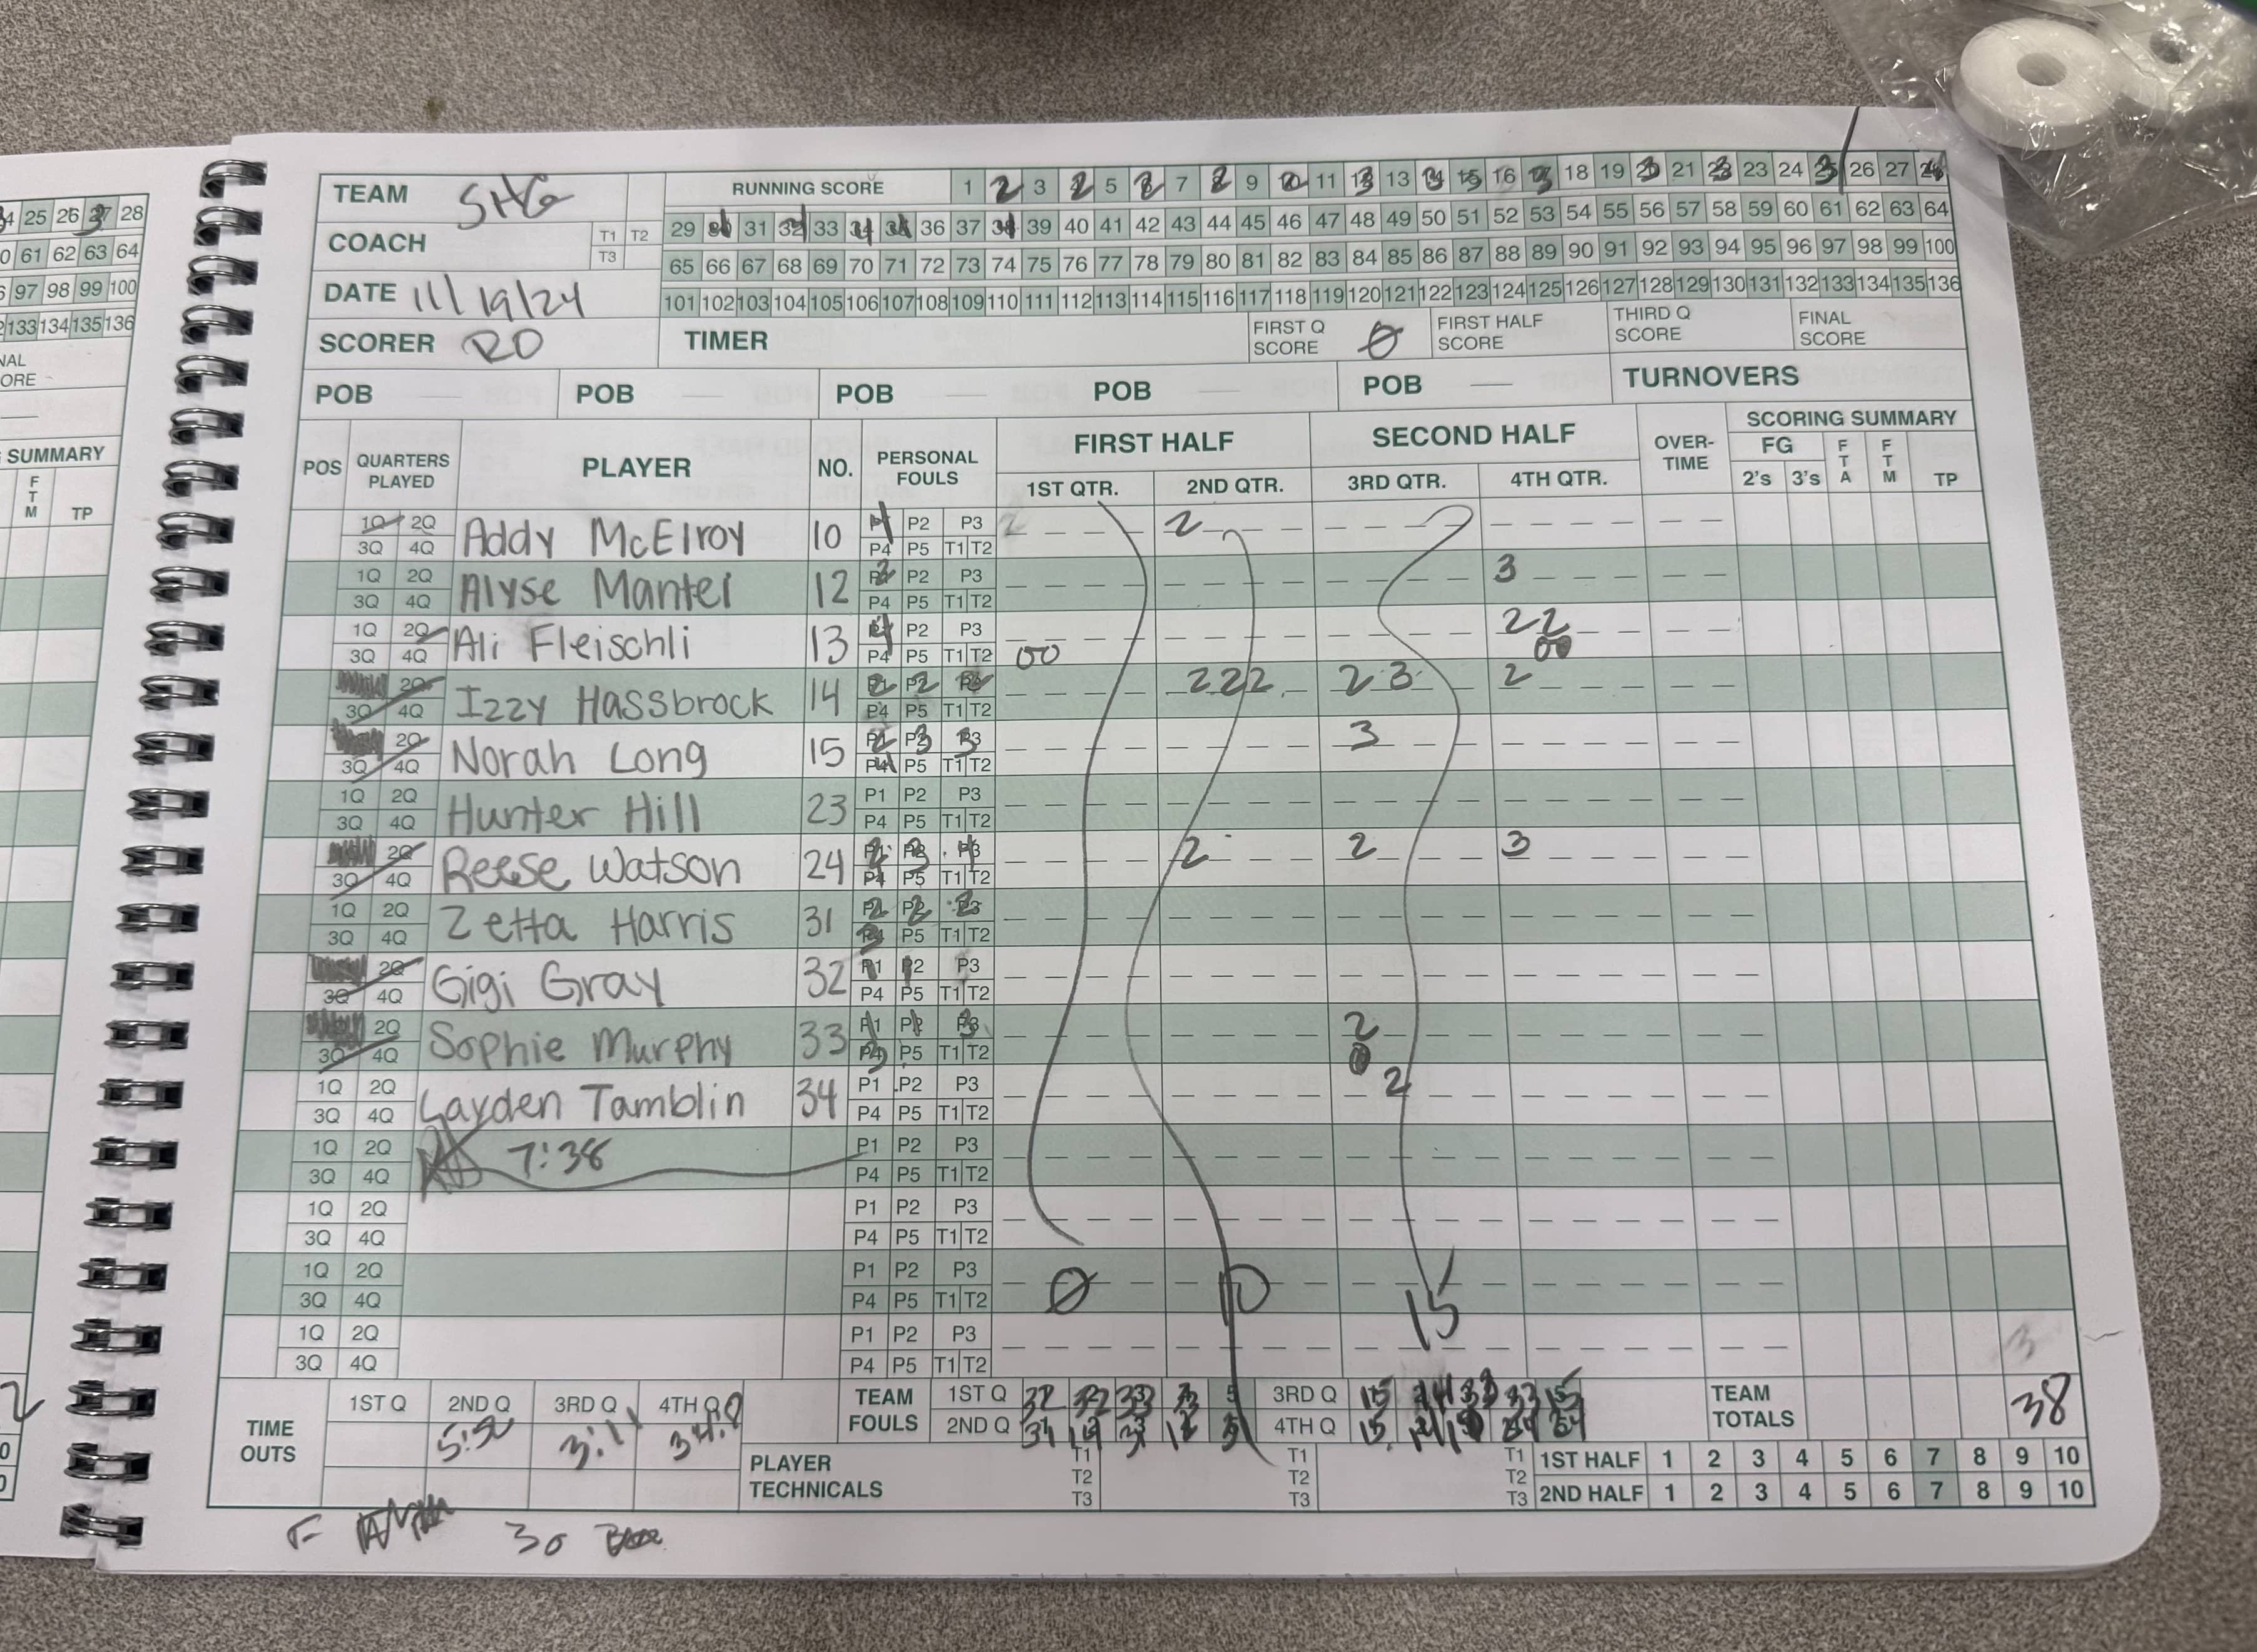 TEAM SHG RUNNING SCORE 1 2 3 2 5 2 7 2 9 10 11 13 14 15 16 18 19 21 23 24 26 27
COACH T1 T2 T3 29 31 32 33 34 36 37 39 40 41 42 43 44 45 46 47 48 49 50 51 52 53 54 55 56 57 58 59 60 61 62 63 64
65 66 67 68 69 70 71 72 73 74 75 76 77 78 79 80 81 82 83 84 85 86 87 88 89 90 91 92 93 94 95 96 97 98 99 100
DATE 11/19/24 101 102 103 104 105 106 107 108 109 110 111 112 113 114 115 116 117 118 119 120 121 122 123 124 125 126 127 128 129 130 131 132 133 134 135 136
SCORER RD TIMER FIRST Q SCORE 0 FIRST HALF SCORE THIRD Q SCORE FINAL SCORE
POB POB POB POB POB TURNOVERS
POS QUARTERS PLAYED PLAYER NO. PERSONAL FOULS FIRST HALF SECOND HALF OVER-TIME SCORING SUMMARY
1ST QTR. 2ND QTR. 3RD QTR. 4TH QTR. FG 2's 3's FTA FTM TP
1Q 2Q Addy McElroy 10 P2 P3 2
3Q 4Q P4 P5 T1 T2
1Q 2Q Alyse Mantel 12 P2 P3 3
3Q 4Q P4 P5 T1 T2
1Q 2Q Ali Fleischli 13 P2 P3 22
3Q 4Q P4 P5 T1 T2 00 00
2Q Izzy Hassbrock 14 222 23 2
3Q 4Q P4 P5 T1 T2
2Q Norah Long 15 3
3Q 4Q P5 T1 T2
1Q 2Q Hunter Hill 23 P1 P2 P3
3Q 4Q P4 P5 T1 T2
2Q Reese Watson 24 2 2 3
3Q 4Q P4 P5 T1 T2
1Q 2Q Zetta Harris 31
3Q 4Q P5 T1 T2
2Q Gigi Gray 32 P3
3Q 4Q P4 P5 T1 T2
2Q Sophie Murphy 33 2
3Q 4Q P5 T1 T2
1Q 2Q Layden Tamblin 34 P1 P2 P3 2
3Q 4Q P4 P5 T1 T2
1Q 2Q 7:38 P1 P2 P3
3Q 4Q P4 P5 T1 T2
1Q 2Q P1 P2 P3
3Q 4Q P4 P5 T1 T2
1Q 2Q P1 P2 P3 0 10 15
3Q 4Q P4 P5 T1 T2
1Q 2Q P1 P2 P3
3Q 4Q P4 P5 T1 T2
TIME OUTS 1ST Q 2ND Q 3RD Q 4TH Q TEAM FOULS 1ST Q 32 33 3RD Q 15 TEAM TOTALS 38
2ND Q 4TH Q 15
PLAYER TECHNICALS T1 T2 T3 T1 T2 T3 T1 T2 T3 1ST HALF 1 2 3 4 5 6 7 8 9 10
2ND HALF 1 2 3 4 5 6 7 8 9 10
F 30
25 26 28
61 62 63 64
97 98 99 100
133 134 135 136
SUMMARY
FTM TP